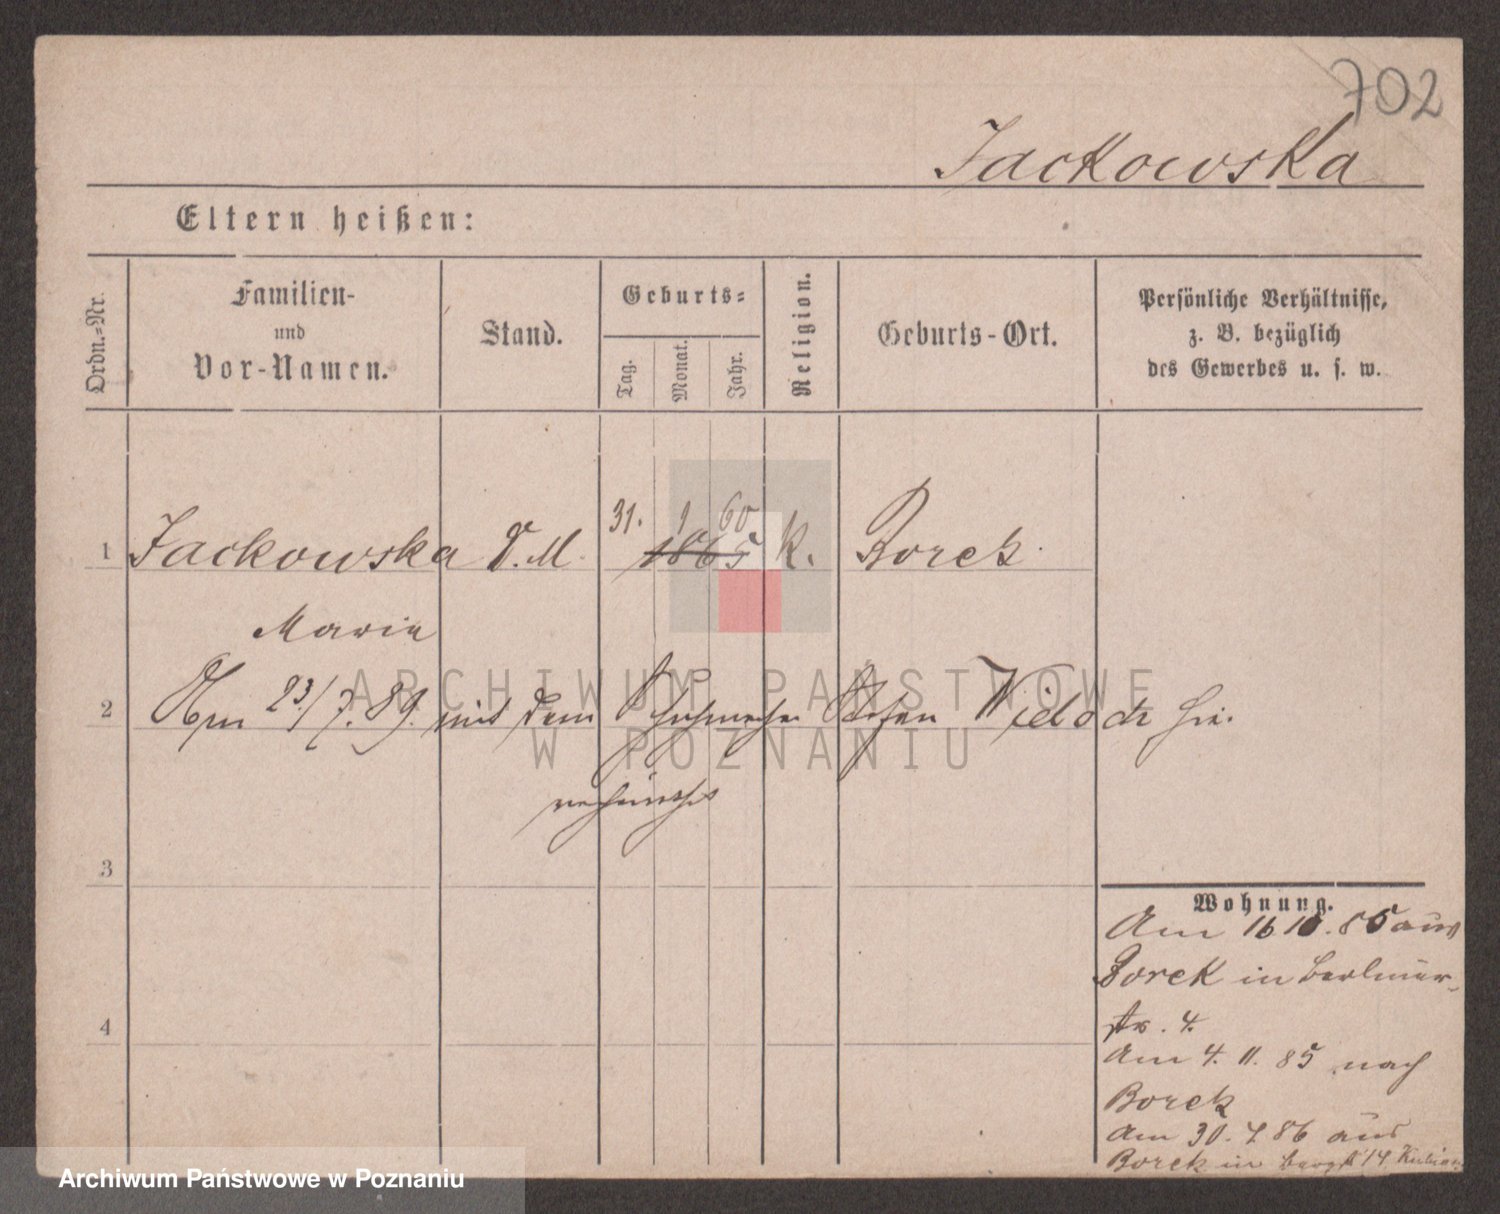 702
Jackowska
Eltern heißen:
Ordn.=Nr.
Familien-
und
Vor-Namen.
Stand.
Geburts=
Tag.
Monat.
Jahr.
Religion.
Geburts-Ort.
Persönliche Verhältnisse,
z. B. bezüglich
des Gewerbes u. s. w.
31. 9 60
1 Jackowska D.M. 1865 K. Borek
Marie
2 Am 23./7. 89. mit dem Stefan Wieloch hie.
verheirathet
3
4
Wohnung.
Am 16 10. 85 aus
Borek in Berliner-
str. 4.
Am 4. 11. 85 nach
Borek
Am 30. 4 86 aus
Borek in 14
ARCHIWUM PAŃSTWOWE
W POZNANIU
Archiwum Państwowe w Poznaniu